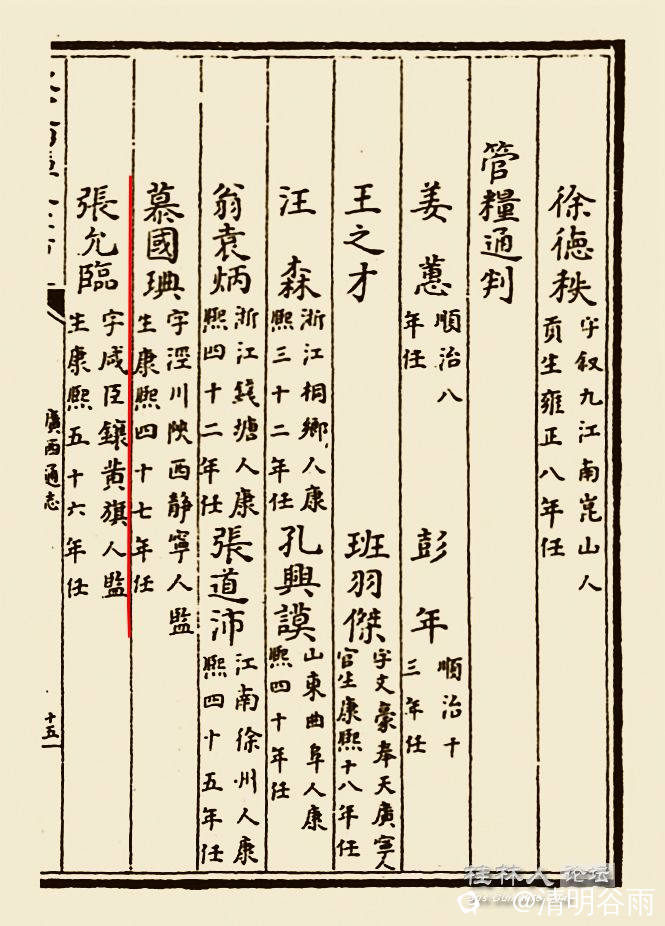 徐德秩 字叙九江南崑山人貢生雍正八年任
管糧通判
姜蕙 順治八年任
彭年 順治十三年任
王之才
班羽傑 字文豪奉天廣寧人官生康熙十八年任
汪森 浙江桐鄉人康熙三十二年任
孔興謨 山東曲阜人康熙四十年任
翁袁炳 浙江錢塘人康熙四十二年任
張道沛 江南徐州人康熙四十五年任
慕國琠 字涇川陝西静寧人監生康熙四十七年任
張允臨 字咸臣鑲黄旗人監生康熙五十六年任
廣西通志
十五
桂林人论坛
@清明谷雨